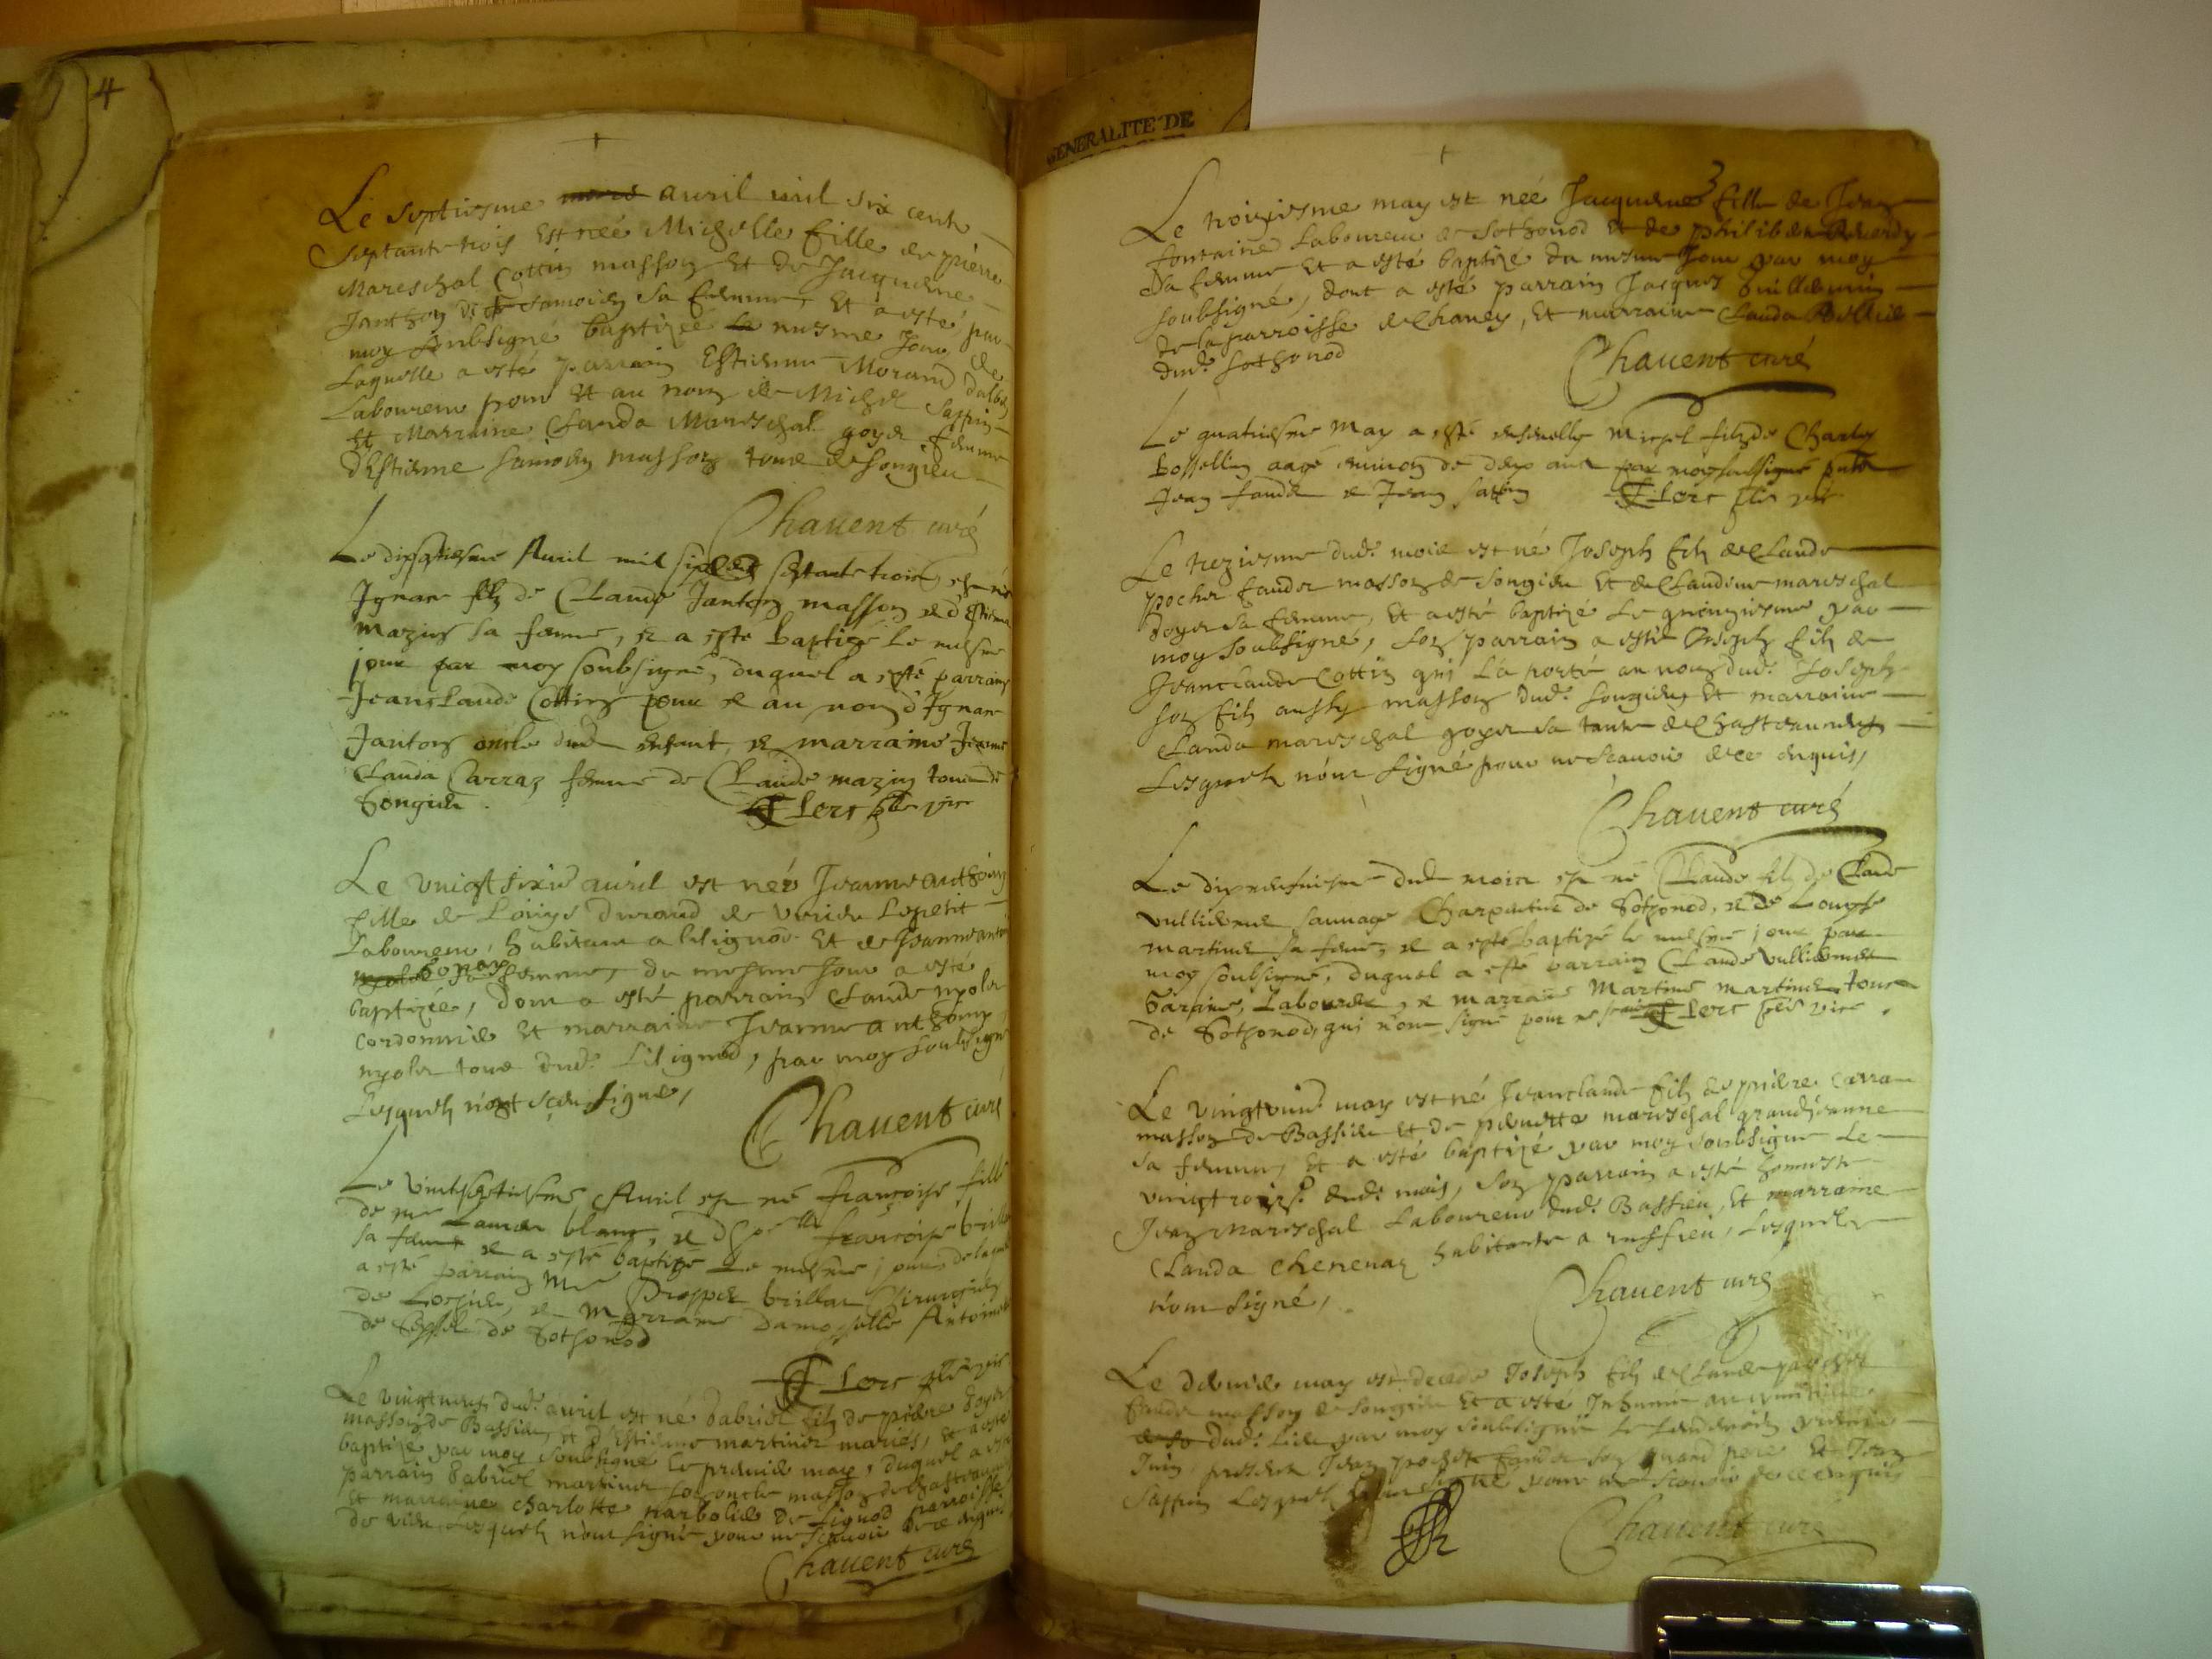 4
Le septiesme mars avril mil six cents
septante trois est née Michelle fille de pierre
Mareschal Cottin masson et de Jacqueme
Janthon dit Samoien sa femme, et a esté par
moy soubsigné baptizée le mesme jour de
laquelle a esté parrain Estienne Morand dalby
laboureur pour et au nom de Michel Sappin
et Marraine Clauda Mareschal goyet femme
d'Estienne samoien masson tous de songieu
Chauent curé
Le dixseptiesme Auril mil six cent septante trois est né
Ignace filz de Claude Janton masson et d'Estiena
mazuy sa femme, et a esté baptizé le mesme
jour par moy soubsigné, duquel a esté parrain
Jeanclaude Cottin pour et au nom d'Ignace
Janton oncle dud enfant, et marraine Jeanne
Clauda Carraz femme de Claude mazuy tous de
Songieu.
Clerc vire
Le vingtsixie auril est née Jeanne anthoine
fille de Louys durand de Lepetit
laboureur, habitant a lilignod et de Jeanne
bonaz femme, du mesme jour a esté
baptizée, dont a esté parrain Claude mpolen
cordonnier et marraine Jeanne anthoine
mpolen tous dud. Lilignod, par moy soubsigné
Lesquels n'ont sceu signe,
Chauent curé
Le vintseptiesme Auril est né françoise fille
de mre blanc, et de françoise brillat
sa femme et a esté baptizé le mesme jour, de laquelle
a esté parrain Mre Prosper brillat Chirurgien
de Lochieu, et Marraine damoyselle Antoine
de Seyssel de Sothonod
Clerc vire
Le vingtneuf dud. auril est né Gabriel filz de piere goyet
masson de Bassieu, et d'Estienne martinez mariés, et a esté
baptizé par moy soubsigné le premier may, duquel a esté
parrain Gabriel martinez son oncle masson de
et marraine charlotte narbolier de lignod parroisse
de vieu, Lesquels n'ont signé pour ne scauoir de ce enquis
Chauent curé
GENERALITE DE
3
Le troiziesme may est née Jacqueme fille de Jean
fontaine laboureur de Sothonod et de philiberte
sa femme et a esté baptizé du mesme Jour par moy
soubsigné, dont a esté parrain Jacques Guillermin
de la parroisse de Chaney, et marraine Clauda
dud. Sothonod
Chauent curé
Le quatriesme May a esté enseuelly Michel filz de Charles
Bosselin aagé enuiron de deux ans par moy subsigné pnts
Jean fander et Jean sappin Clerc vire
Le treziesme dud. mois est né Joseph filz de Claude
pochet fander masson de songieu et de Claudine mareschal
doyen sa femme, et a esté baptizé le quinziesme par
moy soubsigné, son parrain a esté Joseph filz de
Jeanclaude Cottin qui l'a porté au nom dud. Joseph
son filz aussy masson dud. songieu et marraine
Clauda mareschal goyet sa tante de
Lesquels n'ont signé pour ne scauoir de ce enquis,
Chauent curé
Le dixneufuiesme dud mois est né Claude filz de Claude
vulliermet sauuage Charpentier de Sothonod, et de Louyse
martinet sa feme, et a esté baptizé le mesme jour par
moy soubsigné, duquel a esté parrain Claude vulliermet
Laboureur, et marraine Martine martinet tous
de Sothonod, qui n'ont signé pour ne scauoir Clerc vire.
Le vingtun may est né Jeanclaude filz de pierre carra
masson de Bassieu et de pernette mareschal grandjeanne
sa femme, et a esté baptizé par moy soubsigne le
vingtrois. dud. mois, son parrain a esté honneste
Jean Mareschal Laboureur dud. Bassieu, et marraine
Clauda Chenenaz habitante a ruffieu, Lesquels
n'ont signé,
Chauent curé
Le dernier may est decede Joseph filz de Claude pochet
fander masson de songieu et a esté Inhumé au cimitiere
dud. lieu par moy soubsigné le lendemain premier
Juin, presens Jean pochet fander son grand pere et Jean
Sappin Lesquels n'ont signé pour ne scauoir de ce enquis
Chauent curé